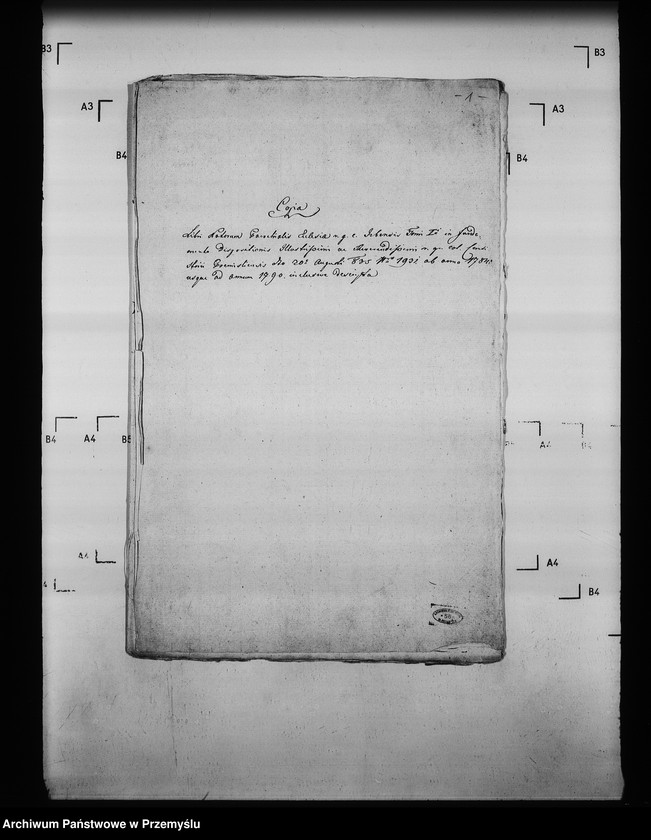 B3
B3
A3
A3
B4
B4
- 1 -
Copia
Libri Natorum Parochialis Ecclesiae r. g. c. Tomi I in funda
mento Dispositionis Illustrissimi ac Reverendissimi r. gr. cat. Consi
storii Premisliensis dto 20 Augusti 835 Nro 1931 ab anno 1784
usque ad annum 1790. inclusive descripta
B4
A4
B5
A4
A4
A4
B4
Archiwum Państwowe w Przemyślu